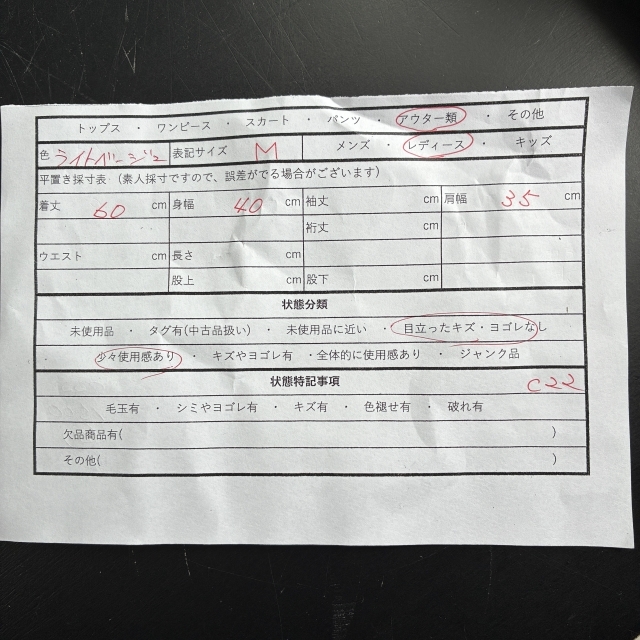 トップス ・ ワンピース ・ スカート ・ パンツ ・ アウター類 ・ その他
色 ライトベージュ 表記サイズ M メンズ ・ レディース ・ キッズ
平置き採寸表（素人採寸ですので、誤差がでる場合がございます）
着丈 60 cm 身幅 40 cm 袖丈 cm 肩幅 35 cm
裄丈 cm
ウエスト cm 長さ cm
股上 cm 股下 cm
状態分類
未使用品 ・ タグ有(中古品扱い) ・ 未使用品に近い ・ 目立ったキズ・ヨゴレなし
少々使用感あり ・ キズやヨゴレ有 ・全体的に使用感あり ・ ジャンク品
状態特記事項 C22
毛玉有 ・ シミやヨゴレ有 ・ キズ有 ・ 色褪せ有 ・ 破れ有
欠品商品有( )
その他( )